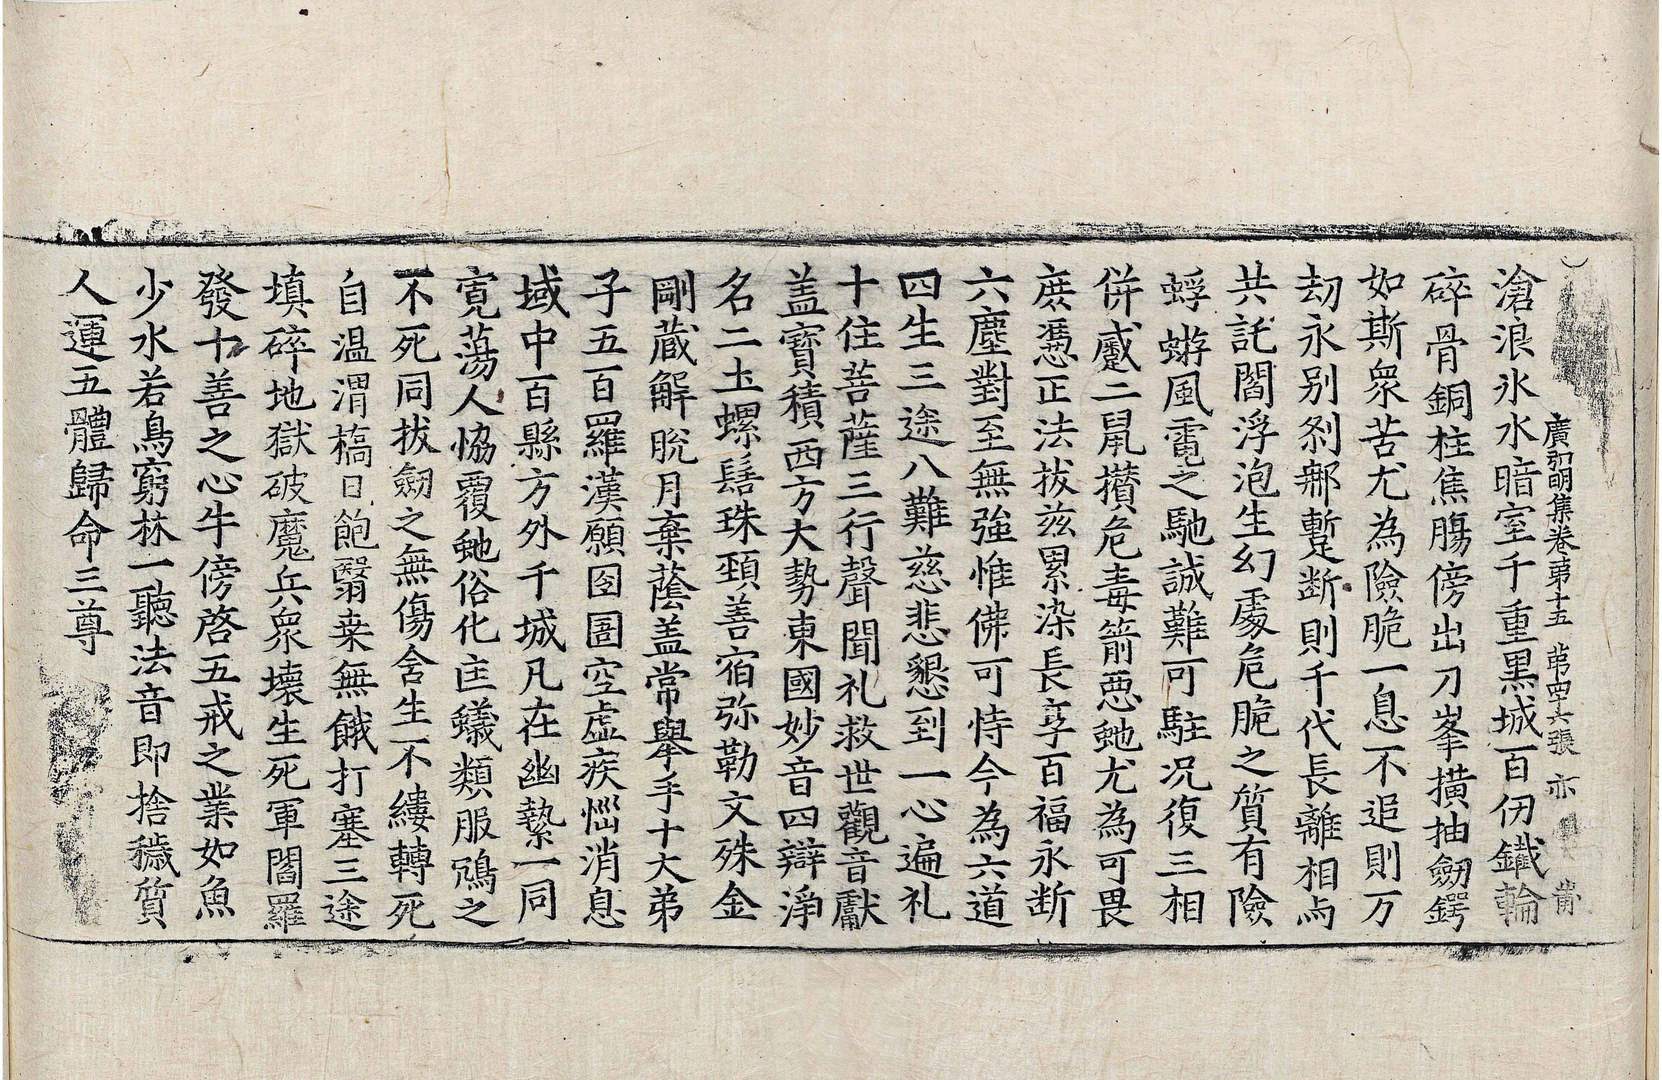 廣弘明集卷苐十五 苐四十六張 亦
滄浪氷水暗室千重黒城百仞鐵輪
碎骨銅柱焦膓傍出刀峯撗抽劔鍔
如斯衆苦尤為險脆一息不追則万
劫永别刹𨚗蹔断則千代長離相与
共託閻浮泡生幻處危脆之質有險
蜉蝣風電之馳誠難可駐况復三相
併蹙二鼠攅危毒箭惡虵尤為可畏
庶憑正法拔兹累染長享百福永断
六塵對至無強惟佛可恃今為六道
四生三途八難慈悲懇到一心遍礼
十住菩薩三行聲聞礼救世觀音獻
盖寳積西方大勢東國妙音四辯淨
名二土螺髻珠頚善宿弥勒文殊金
剛藏解脫月棄蔭盖常舉手十大弟
子五百羅漢願囹圄空虚疾惱消息
域中百縣方外千城凡在幽縶一同
寛蕩人恊覆虵俗化庄蟻類服鴆之
不死同拔劔之無傷舍生不縷轉死
自温渭槁日飽翳桒無餓打塞三途
填碎地獄破魔兵衆壊生死軍閻羅
發十善之心牛傍啓五戒之業如魚
少水若鳥窮林一聽法音即捨穢質
人運五體歸命三尊